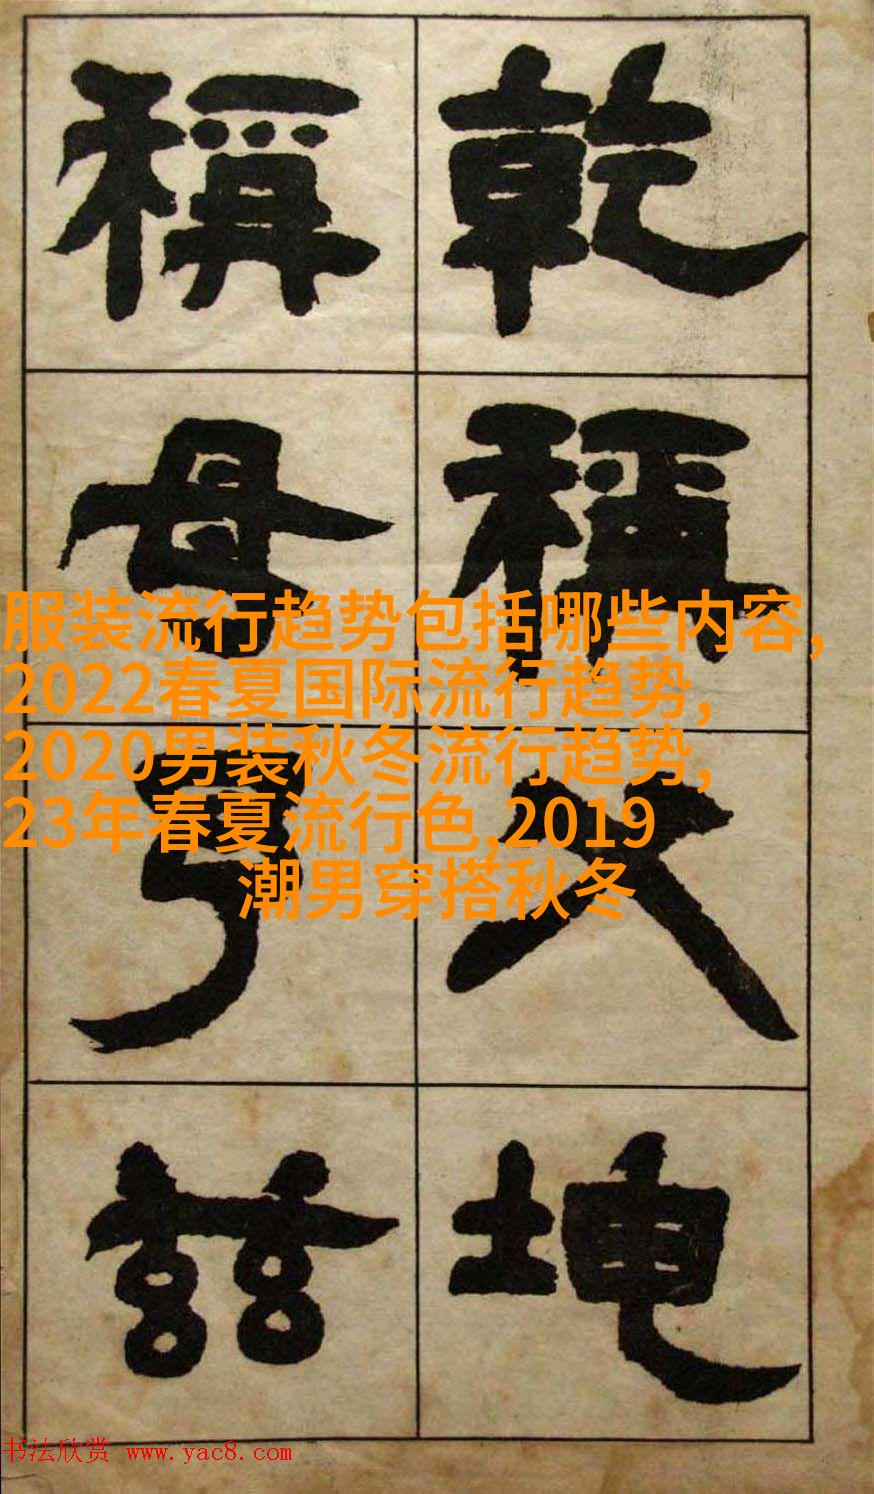 乾稱父坤
稱母予茲
服装流行趋势包括哪些内容,
2022春夏国际流行趋势,
2020男装秋冬流行趋势,
23年春夏流行色,2019
潮男穿搭秋冬
书法欣赏 www.yac8.com